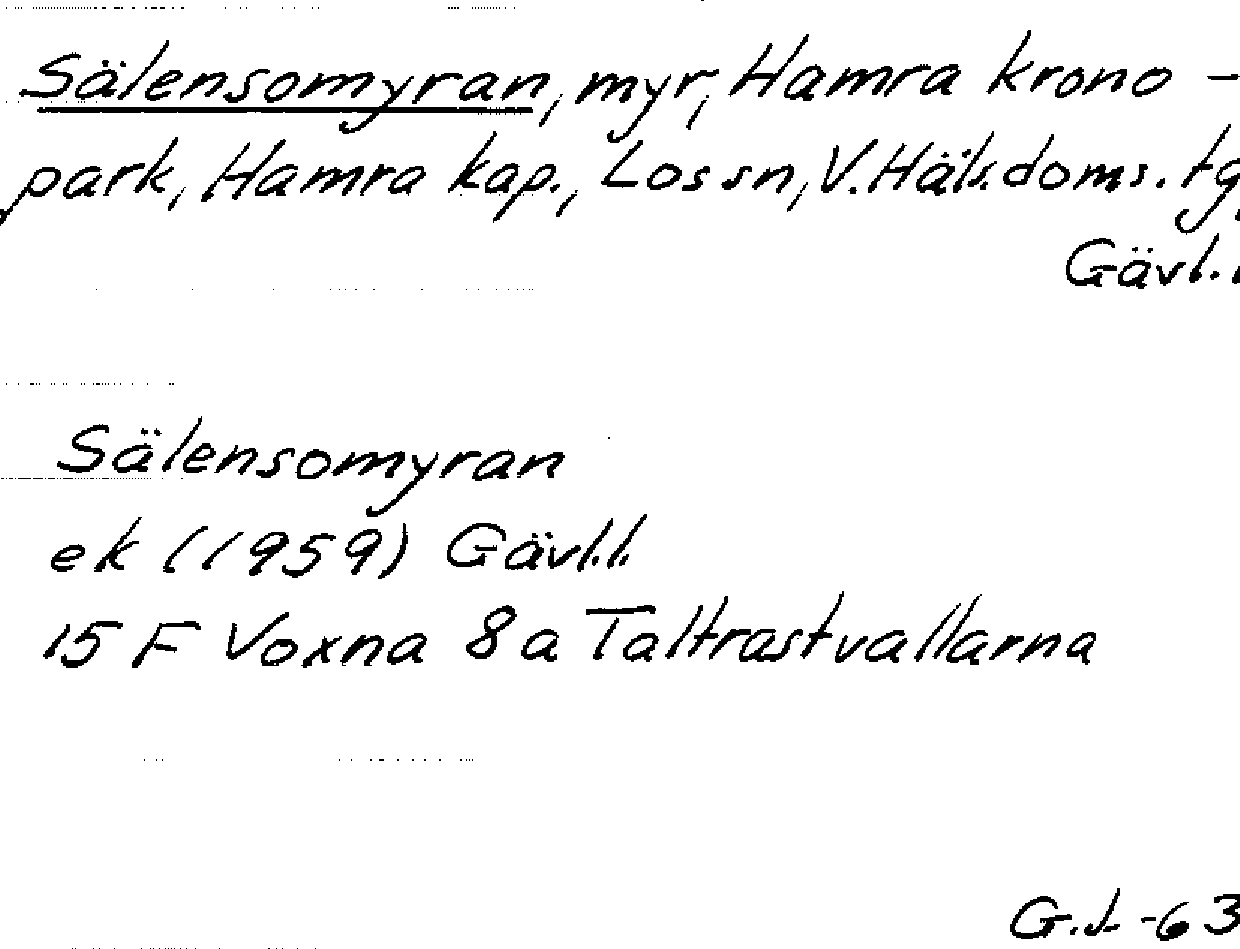 Sälensomyran, myr, Hamra krono-
park, Hamra kap., Los sn, V.Häls.doms.
Gävl.
Sälensomyran
ek (1959) Gävl.l.
15 F Voxna 8 a Taltrastvallarna
-63